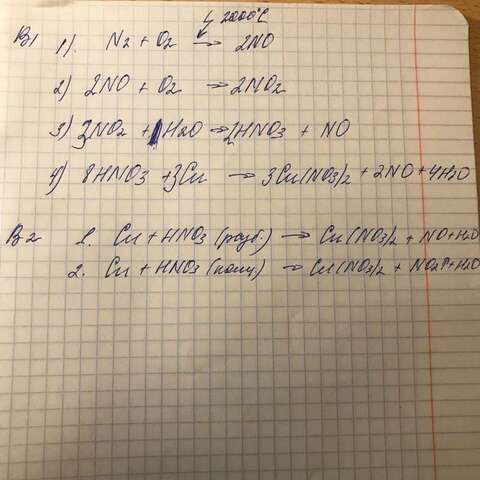 В1 1). N2 + O2 → 2000°C 2NO
2) 2NO + O2 → 2NO2
3) 3NO2 + H2O → 2HNO3 + NO
4) 8HNO3 + 3Cu → 3Cu(NO3)2 + 2NO + 4H2O
В2 1. Cu + HNO3 (разб.) → Cu(NO3)2 + NO + H2O
2. Cu + HNO3 (конц) → Cu(NO3)2 + NO2↑ + H2O